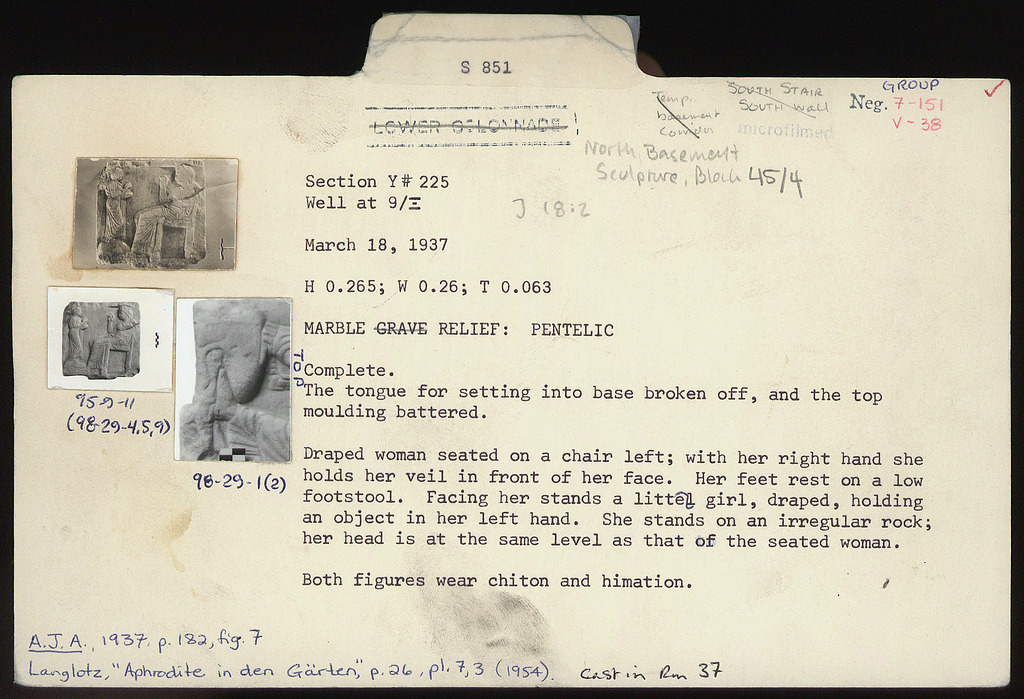 S 851
LOWER COLONNADE
Temp.
basement
Corridor
SOUTH STAIR
SOUTH Wall
microfilmed
GROUP
Neg. 7-151
V-38
North Basement
Sculpture, Block 45/4
Section Y# 225
Well at 9/Ξ
J 18:2
March 18, 1937
H 0.265; W 0.26; T 0.063
MARBLE GRAVE RELIEF: PENTELIC
TOP
Complete.
The tongue for setting into base broken off, and the top
moulding battered.
95-9-11
(98-29-4,5,9)
98-29-1(2)
Draped woman seated on a chair left; with her right hand she
holds her veil in front of her face. Her feet rest on a low
footstool. Facing her stands a littel girl, draped, holding
an object in her left hand. She stands on an irregular rock;
her head is at the same level as that of the seated woman.
Both figures wear chiton and himation.
A.J.A., 1937, p. 182, fig. 7
Langlotz, "Aphrodite in den Gärten", p. 26, pl. 7,3 (1954). Cast in Rm 37